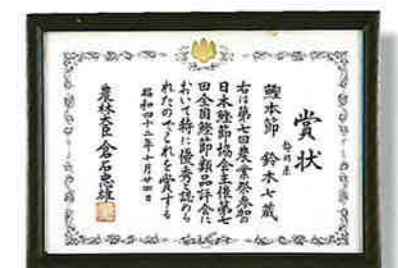 賞状
静岡県
鰹本節 鈴木七蔵
右は第七回農業祭参加
日本鰹節協会主催第七
回全国鰹節類品評会に
おいて特に優秀と認めら
れたのでこれを賞する
昭和四十三年十月廿四日
農林大臣 倉石忠雄